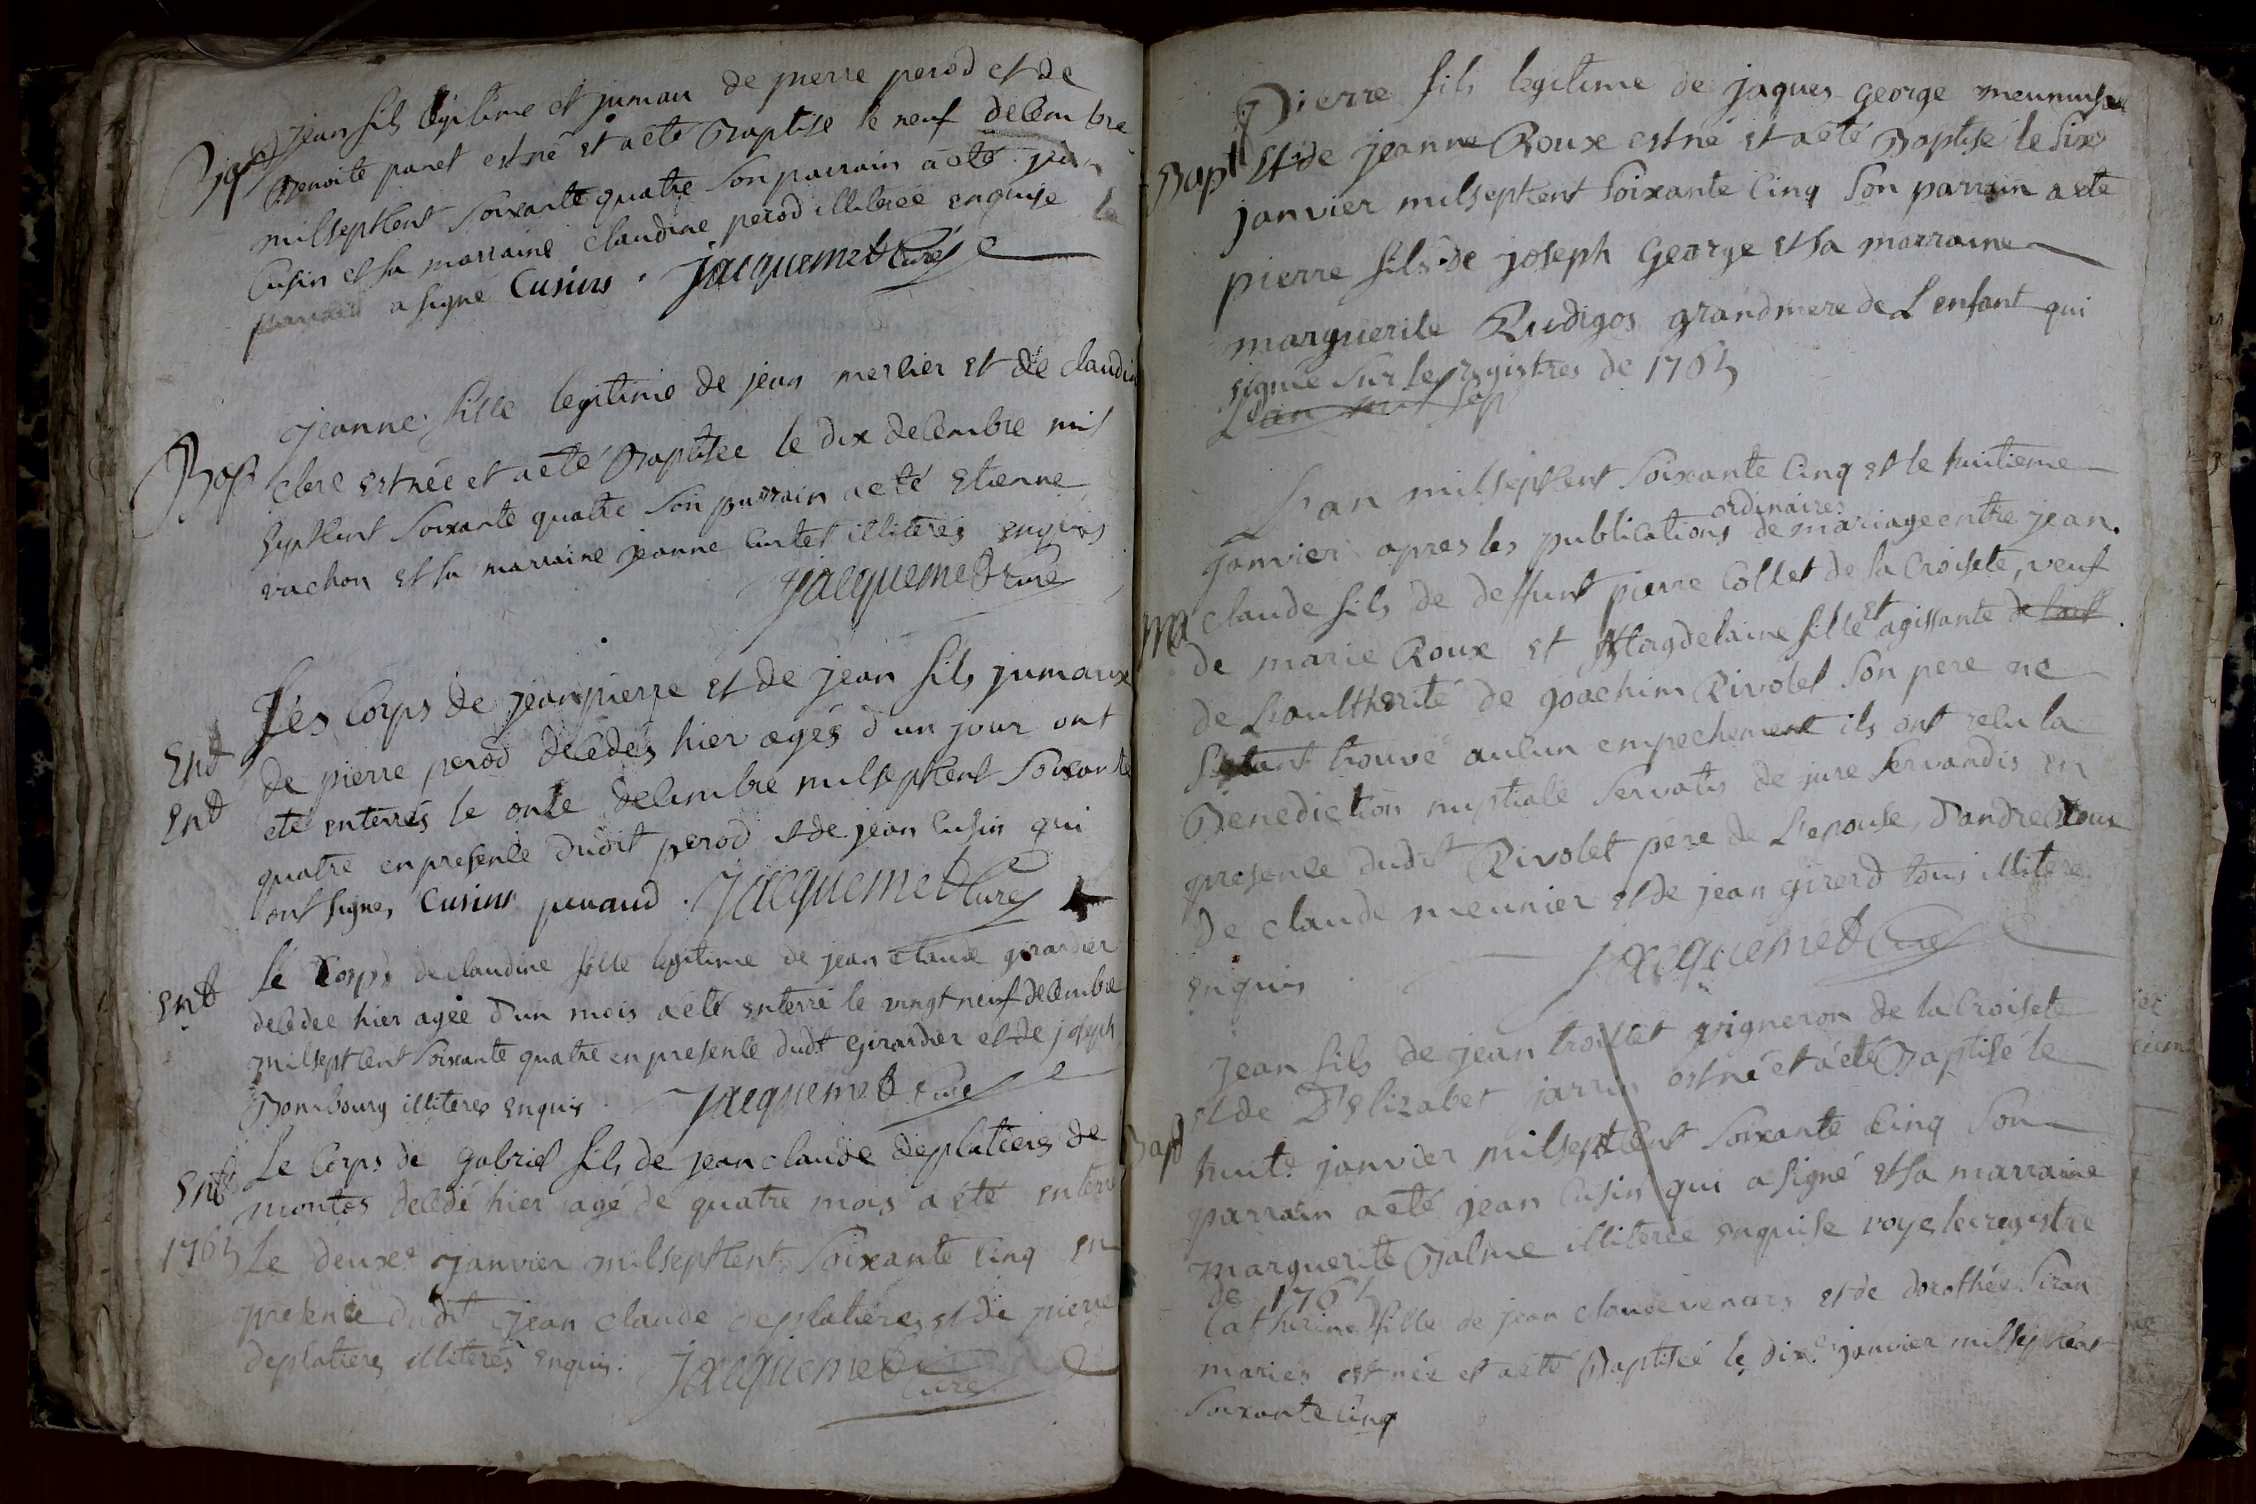 Bapt Jean fils legitime et jumau de pierre perod et de
Benoite panet est né et a eté Baptisé le neuf decembre
milseptcent soixante quatre son parrain a eté jean
Cusin et sa marraine Claudine perod illiteree enquise le
parrain a signe Cusins . Jacquemet Curé
jeanne fille legitime de jean merlier et de claudine
Bap clere est née et a eté Baptisee le dix decembre mil
septcent soixante quatre son parrain a eté Etienne
vachon et sa marraine jeanne curtet illiteres enquis
Jacquemet Curé
Les Corps de jeanpierre et de jean fils jumaux
Ent de pierre perod decedés hier agés d'un jour ont
Ent eté enterrés le onze decembre milseptcent soixante
quatre en presence dudit perod et de jean Cusin qui
ont signes Cusins peraud . Jacquemet Curé
Le Corps de claudine fille legitime de jean claude girardier
Ent decedee hier agée d'un mois a eté enterré le vingt neuf decembre
milseptcent soixante quatre en presence dudt girardier et de joseph
Dombourg illiteres enquis . Jacquemet Curé
Le Corps de gabriel fils de jean claude deplatieres de
Ent montes decedé hier agé de quatre mois a eté enterré
1765 Le deuxe janvier milseptcent soixante cinq en
presence dudt jean claude deplatieres et de pierre
deplatieres illiteres enquis. Jacquemet Curé
Pierre fils legitime de jaques george meunuisier
Bapt Et de jeanne Roux est né et a eté Baptisé le six
janvier milseptcent soixante cinq son parrain a eté
pierre fils de joseph george et sa marraine
marguerite Rudigos grandmere de L'enfant qui
signée sur les registres de 1765
L'an mil sep
L'an milseptcent soixante cinq et le huitieme
janvier apres les publications ordinaires de mariage entre jean
claude fils de deffunt pierre Collet de la Croisete, veuf
Ma de marie Roux et Magdelaine fille et agissante
de L'aultherité de joachim Rivolet son pere ne
s'etant trouvé aucun empechement ils ont reçu la
Benediction nuptiale servatis de jure servandis en
presence dudit Rivolet pere de L'epouse, D'andre Roux
De claude meunier et de jean girerd tous illiteres
enquis . Jacquemet Curé
Jean fils de jean trollet vigneron de la Croisete
et de D'Elizabet jarrin est né et a eté Baptisé le
Bapt huite janvier milseptcent soixante cinq son
parrain a eté jean Cusin qui a signé et sa marraine
marguerite Balme illiteree enquise voye le registre
de 1765
Catherine fille de jean claude venars et de dorothée Siran
mariés est née et a eté Baptisée le dixe janvier milseptcent
soixante cinq